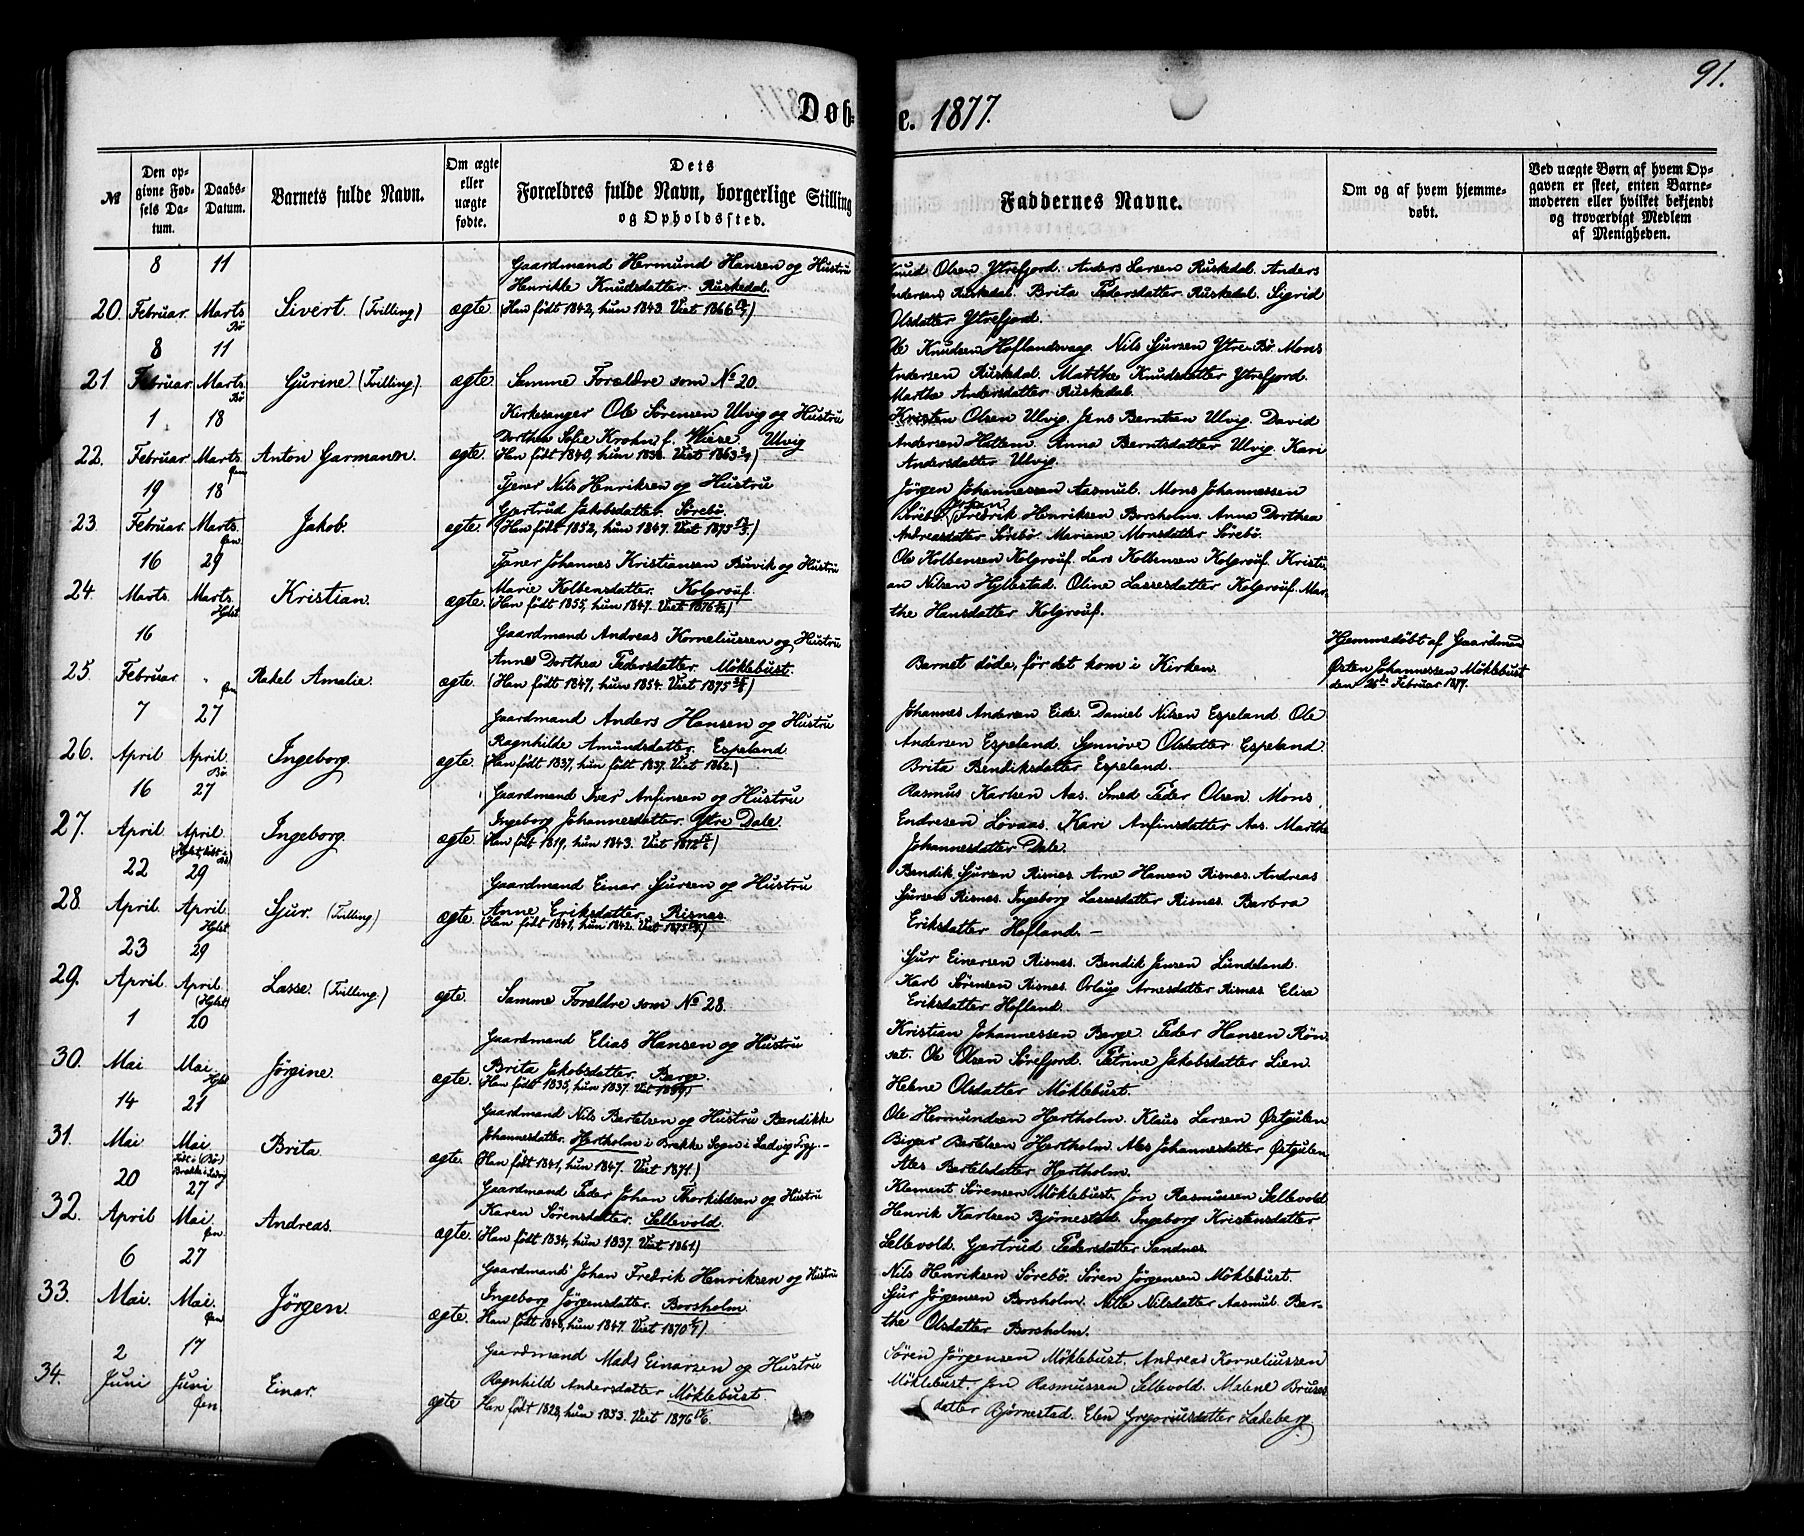 91.
Døbte. 1877.
№
Den opgivne Fødsels Datum.
Daabs-Datum.
Barnets fulde Navn.
Om ægte eller uægte fødte.
Dets Forældres fulde Navn, borgerlige Stilling og Opholdssted.
Faddernes Navne.
Om og af hvem hjemmedøbt.
Ved uægte Børn af hvem Opgaven er skeet, enten Barnemoderen eller hvilket bekjendt og troværdigt Medlem af Menigheden.
20. 8 Februar. 11 Marts. Bø Sivert. (Tvilling) ægte.
Gaardmand Hermund Hansen og Hustru
Henrikke Knudsdatter. Ruskedal.
(Han født 1842, hun 1843. Viet 1866
Knud Olsen Ytrefjord. Anders Larsen Ruskedal. Anders
Andersen Ruskedal. Brita Pedersdatter Ruskedal. Sigrid
Olsdatter Ytrefjord.
21. 8 Februar. 11 Marts. Bø Gurine (Tvilling). ægte.
Samme Forældre som No 20.
Ole Knudsen Hoflandsvaag. Nils Sjursen Ytre-Bø. Mons
Andersen Ruskedal. Marthe Knudsdatter Ytrefjord.
Martha Andersdatter Ruskedal.
22. 1 Februar. 18 Marts. Øen Anton Garmann. ægte.
Kirkesanger Ole Sørensen Ulvig og Hustru
Dorthea Sofie Krohn f. Wiese. Ulvig
(Han født 1840, hun 1838. Viet 1863
Kristen Olsen Ulvig. Jens Berntsen Ulvig. David
Andersen Hattem. Anna Berntsdatter Ulvig. Kari
Andersdatter Ulvig.
23. 19 Februar. 18 Marts. Øen Jakob. ægte.
Tjener Nils Henriksen og Hustru
Gjertrud Jakobsdatter. Sørebø.
(Han født 1852, hun 1847. Viet 1875
Jørgen Johannessen Aasmul. Mons Johannessen
Sørebø. Johan Fredrik Henriksen Borsholm. Anna Dorthea
Andreasdatter Sørebø. Mariane Monsdatter Sørebø.
24. 16 Marts. 29 Marts. Hylst Kristian. ægte.
Tjener Johannes Kristiansen Buvik og Hustru
Marie Kolbensdatter. Kolgrouf.
(Han født 1855, hun 1847. Viet 1876
Ole Kolbensen Kolgrouf. Lars Kolbensen Kolgrouf. Kristi-
an Nilsen Hyllestad. Oline Lassesdatter Kolgrouf. Mar-
the Hansdatter Kolgrouf.
25. 16 Februar. Øen Rakel Amalie. ægte.
Gaardmand Andreas Korneliussen og Hustru
Anne Dorthea Pedersdatter. Møklebust.
(Han født 1847, hun 1854. Viet 1875
Barnet døde, før det kom i Kirken.
Hjemmedøbt af Gaardmand
Østen Johannessen Møklebust
den 25de Februar 1877.
26. 7 April. 27 April. Bø. Ingeborg. ægte.
Gaardmand Anders Hansen og Hustru
Ragnhilde Amundsdatter. Espeland
(Han født 1837, hun født 1837. Viet 1862.)
Johannes Andersen Eide. Daniel Nilsen Espeland. Ole
Andersen Espeland. Synnøve Olsdatter Espeland.
Brita Bendiksdatter Espeland.
27. 16 April. 27 April. Ingeborg. ægte.
Gaardmand Iver Anfinsen og Hustru
Ingeborg Johannesdatter. Ytre Dale.
(Han født 1819, hun 1843. Viet 1872
Rasmus Karlsen Aas. Smed Peder Olsen. Mons
Endresen Løvaas. Kari Anfinsdatter Aas. Marthe
Johannesdatter Dale.
28. 22 April. 29 April. Hylst Sjur. (Tvilling) ægte.
Gaardmand Einar Sjursen og Hustru
Anne Eriksdatter. Risnes.
(Han født 1841, hun 1842. Viet 1875
Bendik Sjursen Risnes. Arne Hansen Risnes. Andreas
Sjursen Risnes. Ingeborg Lassesdatter Risnes. Barbra
Eriksdatter Hofland.
29. 23 April. 29 April. (Hylst) Lasse. (Tvilling.) ægte.
Samme Forældre som No 28.
Sjur Einersen Risnes. Bendik Jensen Lundeland.
Karl Sørensen Risnes. Orlaug Arnesdatter Risnes. Elisa
Eriksdatter Hofland.
30. 1 Mai 20 Mai. Hylst Jørgine. ægte.
Gaardmand Elias Hansen og Hustru
Brita Jakobsdatter. Berge.
(Han født 1835, hun 1837. Viet
Kristian Johannessen Berge. Peder Hansen Røn-
set. Ole Olsen Sørefjord. Petrine Jakobsdatter Lien.
Helene Olsdatter Møklebust.
31. 14 Mai 21 Mai Brita. ægte.
Gaardmand Nils Bertelsen og Hustru Bendikke
Johannesdatter. Hertholm i Brekke Sogn i Ladvig
(Han født 1841, hun 1847. Viet 1871.)
Ole Hermundsen Hertholm. Klaus Larsen Østgulen
Birger Bertelsen Hertholm. Ales Johannesdatter Østgulen
Ales Bertelsdatter Hertholm.
32. 20 April 27 Mai. Øen Andreas. ægte.
Gaardmand Peder Johan Thorkildsen og Hustru
Karen Sørensdatter. Sellevold.
(Han født 1834, hun 1837. Viet 1861.)
Klement Sørensen Møklebust. Jon Rasmussen Sellevold
Henrik Karlsen Bjørnestad. Ingeborg Kristensdatter
Sellevold. Gjertrud Pedersdatter Sandnes.
33. 6 Mai. 27 Mai. Øen Jørgen. ægte.
Gaardmand Johan Fredrik Henriksen og Hustru
Ingeborg Jørgensdatter. Borsholm.
(Han født 1848, hun 1847. Viet 1870
Nils Henriksen Sørebø. Søren Jørgensen Møklebust.
Sjur Jørgensen Borsholm. Nille Nilsdatter Aasmul. Ber-
the Olsdatter Borsholm.
34. 2 Juni 17 Juni Øen. Einar. ægte
Gaardmand Mads Einarsen og Hustru
Ragnhild Andersdatter Møklebust.
(Han født 1828, hun 1853. Viet 1876
Søren Jørgensen Møklebust. Andreas Korneliussen
Møklebust. Jon Rasmussen Sellevold. Malene Bruus-
datter Bjørnestad. Elen Gregoriusdatter Ladeberg.